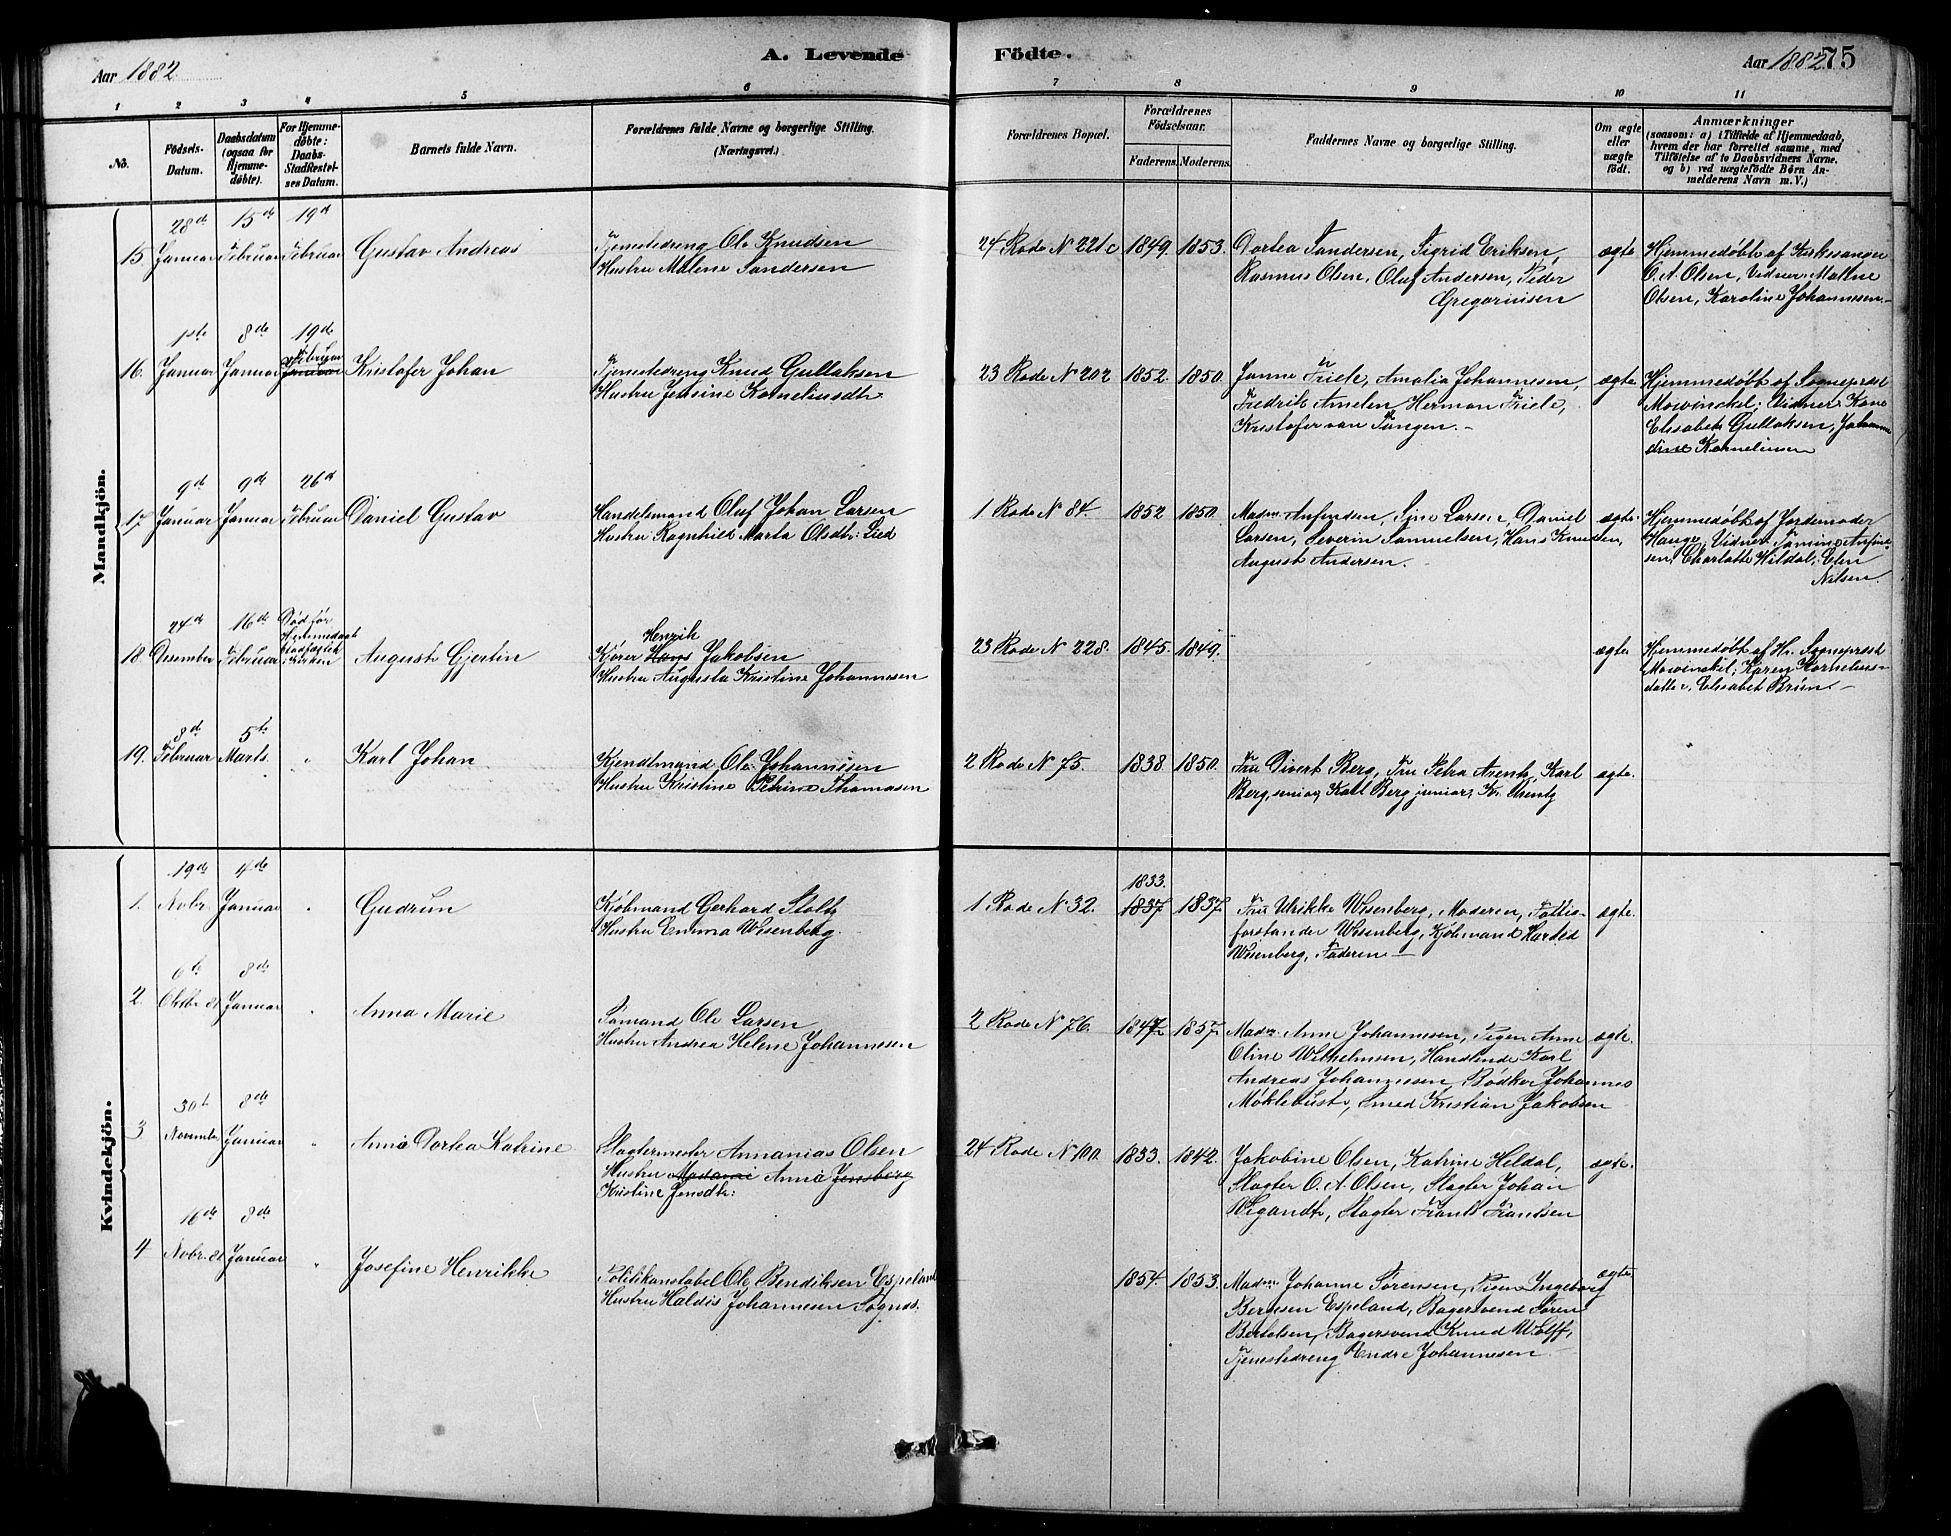 Aar 1882
A. Levende
Födte.
Aar 1882
75
1 2 3 4 5 6 7 8 9 10 11
No.
Födsels-
Datum.
Daabsdatum
(ogsaa for
Hjemme-
döbte).
For Hjemme-
döbte:
Daabs-
Stadfæstel-
ses Datum.
Barnets fulde Navn.
Forældrenes fulde Navne og borgerlige Stilling.
(Næringsvei.)
Forældrenes Bopæl.
Forældrenes
Födselsaar.
Faderens.
Moderens.
Faddernes Navne og borgerlige Stilling.
Om ægte
eller
uægte
födt.
Anmærkninger
(saasom: a) i Tilfælde af Hjemmedaab,
hvem der har forrettet samme, med
Tilföielse af to Daabsvidners Navne.
og b) ved uægtefödte Börn An-
melderens Navn m. V.)
Mandkjön.
28de 15de 19de
15 Januar Februar Februar Gustav Andreas
Tjenestedreng Ole Knudsen
Hustru Malene Sandersen
24 Rode N 221c 1849. 1853.
Dortea Sandersen, Sigrid Eriksen,
Rasmus Olsen, Oluf Andersen, Peder
Gregoriusen
ægte
Hjemmedøbt af Kirkesanger
O. A. Olsen, Vidner: Maline
Olsen, Karoline Johannesen.
1ste 8de 19de
Februar
16. Januar Januar Januar Kristofer Johan
Tjenestedreng Knud Gullaksen
Hustru Jensine Korneliusdtr
23 Rode N 202 1852. 1850.
Janna Friele, Amalia Johannesen,
Fredrik Amelen, Herman Friele,
Kristofer van Tangen.
ægte
Hjemmedøbt af Sogneprest
Mowinckel; Vidner: Kone
Elisabeth Gullaksen, Johanne
dine Kornelius
9de 9de 26de
17 Januar Januar Februar Daniel Gustav
Handelsmand Oluf Johan Larsen
Hustru Ragnhild Marta Olsdtr: Lied
1 Rode N 84. 1852 1850.
Madm Anfindsen, Sine Larsen, Daniel
Larsen, Severin Samuelsen, Hans Knudsen,
August Andersen.
ægte
Hjemmedøbt af Jordemoder
Hauge, Vidner: Tamine Anfind-
sen, Charlotte Hildal, Elen
Nilsen.
24de 16de Død før
18. Desember Februar August Gjertin
Henrik
Kører Hans Jakobsen
Hustru Augusta Kristine Johannesen
23 Rode N 228. 1845. 1849.
ægte
Hjemmedøbt af Hr. Sogneprest
Mowinckel; Karen Kornelius-
datter, Elisabet Brün.
8de 5te
19. Februar Marts. " Karl Johan
Kjendtmand Ole Johannesen
Hustru Kristine Petrine Thomasen
2 Rode N 75. 1838 1850.
Fru Divert Berg, Fru Petra Arentz, Karl
Berg, senior, Karl Berg junior, Kr. Arentz
ægte.
Kvindekjön.
19de 4de
1. Novbr. Januar " Gudrun
Kjøbmand Gerhard Stoltz
Hustru Emma Wesenberg.
1833.
1 Rode N 32. 1837 1837.
Fru Ulrikke Wesenberg, Moderen, Fattig-
forstander Wesenberg, Kjøbmand Hartvid
Wesenberg, Faderen
ægte.
6te 8de
2. Oktbr 81 Januar " Anna Marie
Sømand Ole Larsen
Hustru Andrea Helene Johannesen
2 Rode N 76. 1847 1857
Madm Anne Johannesen, Pigen Anne
Oline Wilhelmsen, Handlende Karl
Andreas Johannesen, Bødker Johannes
Møklebust, Smed Kristian Jakobsen
ægte.
30te 8de
3 November Januar " Anna Dortea Katrine
Slagtermester Annanias Olsen
Hustru Madame Anna Jensberg
Kristine Jensdtr:
24 Rode N 100. 1833. 1842.
Jakobine Olsen, Katrine Heldal,
Slagter O. A. Olsen, Slagter Johan
Wigandt, Slagter Frants Frantsen
ægte.
16de 8de
4 Novbr. 81 Januar " Josefine Henrikke
Politikonstabel Ole Bendiksen Espeland
Hustru Haldis Johannesen Sognds.
1854. 1853.
Madm Johanne Sørensen, Pigen Ingeborg
Berntsen Espeland, Bagersvend Søren
Bertelsen, Bagersvend Knud Wolff,
Tjenestedreng Endre Johannesen
ægte